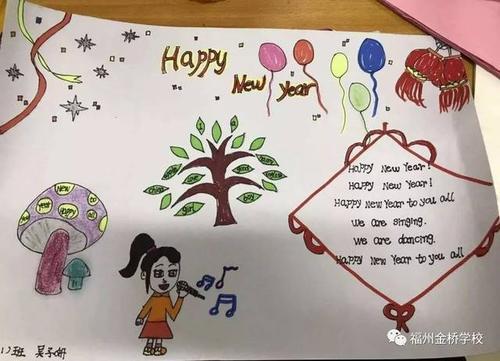 Happy
New Year
Happy New Year!
Happy New Year!
Happy New Year to you all
We are singing.
We are dancing.
Happy New Year to you all
New
to
Happy
all
福州金桥学校